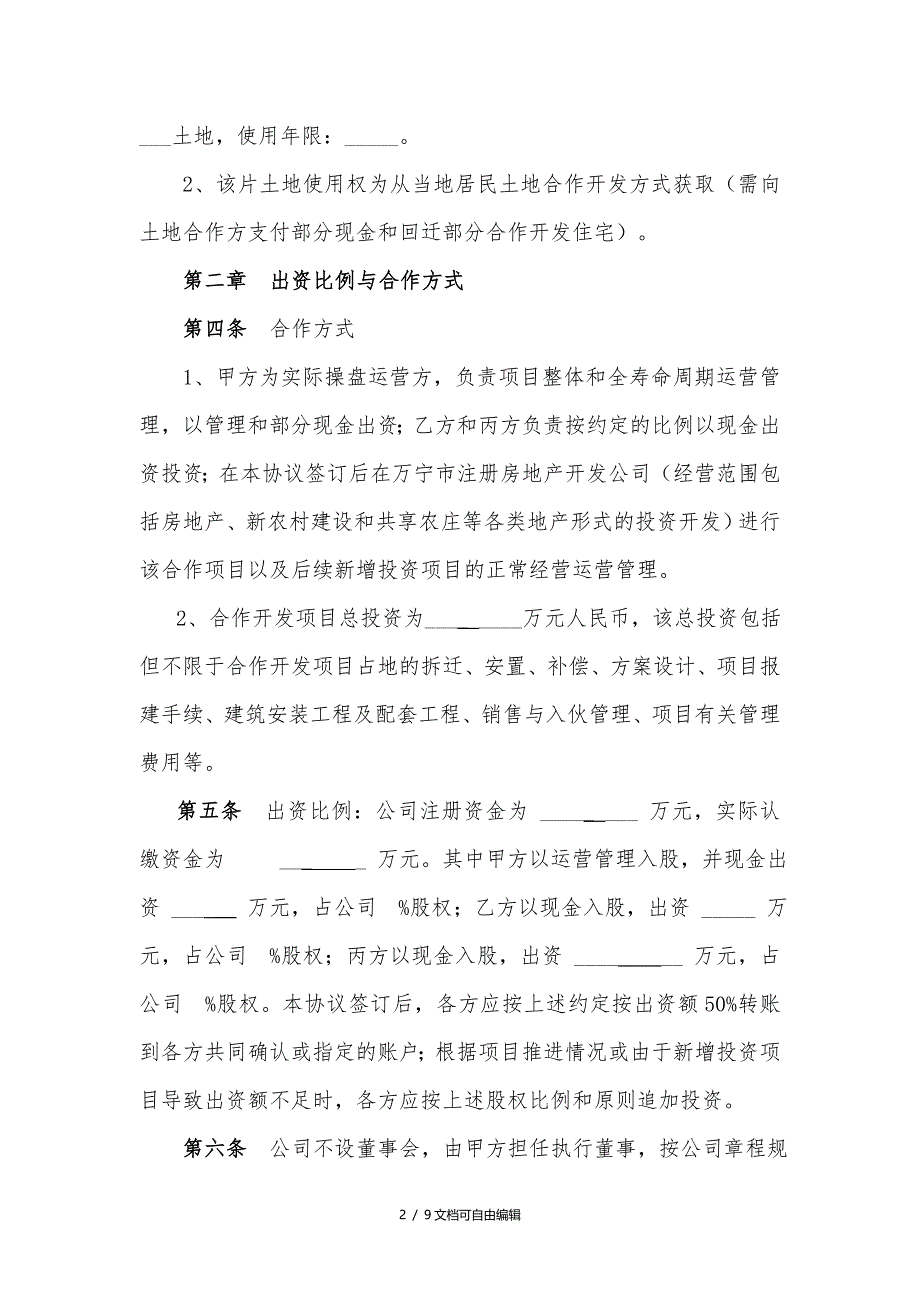 ___土地，使用年限：_____。
2、该片土地使用权为从当地居民土地合作开发方式获取（需向
土地合作方支付部分现金和回迁部分合作开发住宅）。
第二章　出资比例与合作方式
第四条　合作方式
1、甲方为实际操盘运营方，负责项目整体和全寿命周期运营管
理，以管理和部分现金出资；乙方和丙方负责按约定的比例以现金出
资投资；在本协议签订后在万宁市注册房地产开发公司（经营范围包
括房地产、新农村建设和共享农庄等各类地产形式的投资开发）进行
该合作项目以及后续新增投资项目的正常经营运营管理。
2、合作开发项目总投资为_________万元人民币，该总投资包括
但不限于合作开发项目占地的拆迁、安置、补偿、方案设计、项目报
建手续、建筑安装工程及配套工程、销售与入伙管理、项目有关管理
费用等。
第五条　出资比例：公司注册资金为 _________ 万元，实际认
缴资金为　　________ 万元。其中甲方以运营管理入股，并现金出
资 ______ 万元，占公司　%股权；乙方以现金入股，出资 _____ 万
元，占公司　%股权；丙方以现金入股，出资 __________ 万元，占
公司　%股权。本协议签订后，各方应按上述约定按出资额50%转账
到各方共同确认或指定的账户；根据项目推进情况或由于新增投资项
目导致出资额不足时，各方应按上述股权比例和原则追加投资。
第六条　公司不设董事会，由甲方担任执行董事，按公司章程规
2 / 9文档可自由编辑